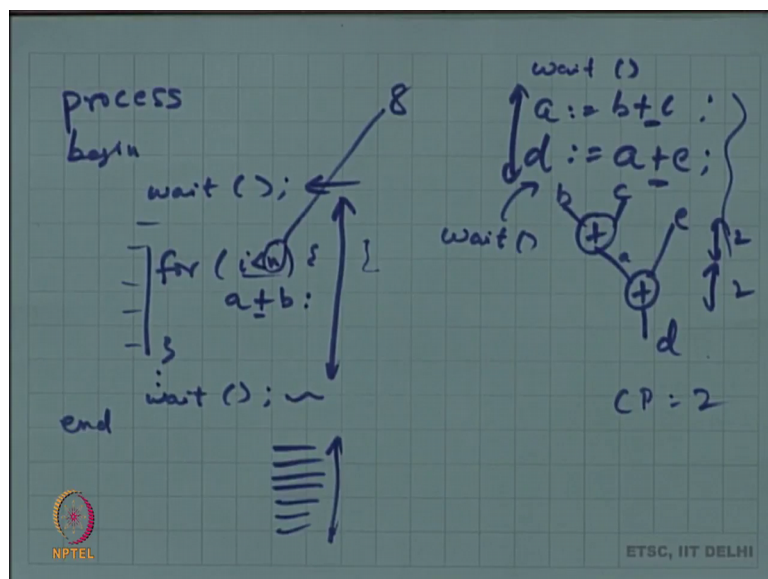 process
begin
wait ();
8
for ( i<n ) {
a+b:
}
wait ();
end
wait ()
a := b+c ;
d := a+e;
wait ()
b
c
+
a
e
+
d
2
2
CP = 2
NPTEL
ETSC, IIT DELHI